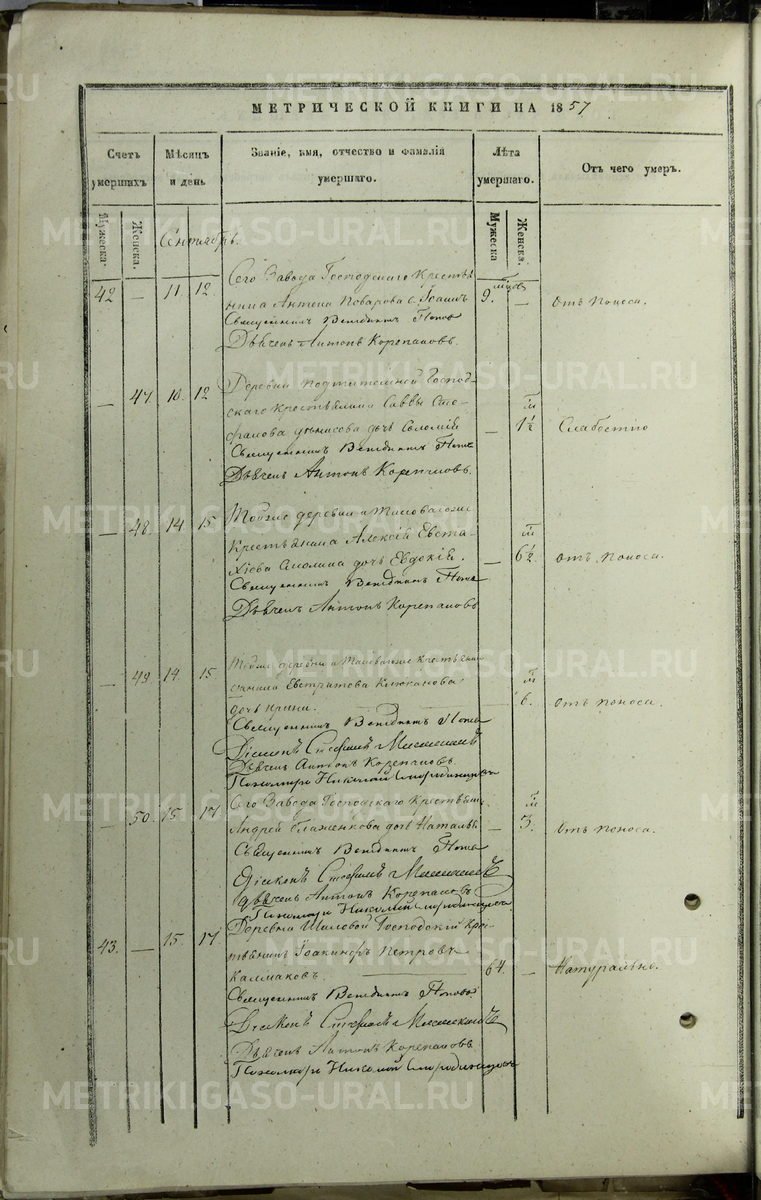 МЕТРИЧЕСКОЙ КНИГИ НА 1857.
Счетъ умершихъ
Мѣсяцъ и день
Званіе, имя, отчество и фамилія умершаго.
Лѣта умершаго.
Отъ чего умеръ.
Мужеска.
Женска.
Мужеска
Женска.
Сентябрь.
42 — 11 12 Сего Завода Господскаго Крестья 9. —
нина Антона Поварова с. Іоаннъ
Отъ поноса.
Священникъ Венедиктъ Попов
Дьячекъ Антонъ Корепановъ.
— 47. 10. 12 Деревни Господ-
скаго крестьянина Саввы Сте- — 1½
фанова дочь Соломія Слабостію
Священникъ Венедиктъ Попов
Дьячекъ Антонъ Корепановъ.
— 48. 14 15 Тойже деревни и
Крестьянина Алексія Евста — 6½
хіева дочь Евдокія. Отъ поноса.
Священникъ Венедиктъ Попов
Дьячекъ Антонъ Корепановъ
— 49 14. 15 Тойже деревни и
Евстратова 6.
дочь Ирина. Отъ поноса.
Священникъ Венедиктъ Попов
Діаконъ Стефанъ
Дьячекъ Антонъ Корепановъ.
Пономарь Николай Смородинцевъ
— 50. 15. 17 Сего Завода Господскаго Крестьян.
Андрея дочь Наталья — 3. Отъ поноса.
Священникъ Венедиктъ Попов
Діаконъ Стефанъ
Дьячекъ Антонъ Корепановъ
Пономарь Николай Смородинцевъ
43. — 15. 17 Деревни Шиловой Господскій Кре-
стьянинъ Іоакимъ Петровъ
Калмаковъ. 64. — Натурально.
Священникъ Венедиктъ Попов
Діаконъ Стефанъ
Дьячекъ Антонъ Корепановъ
Пономарь Николай Смородинцевъ
METRIKI.GASO-URAL.RU